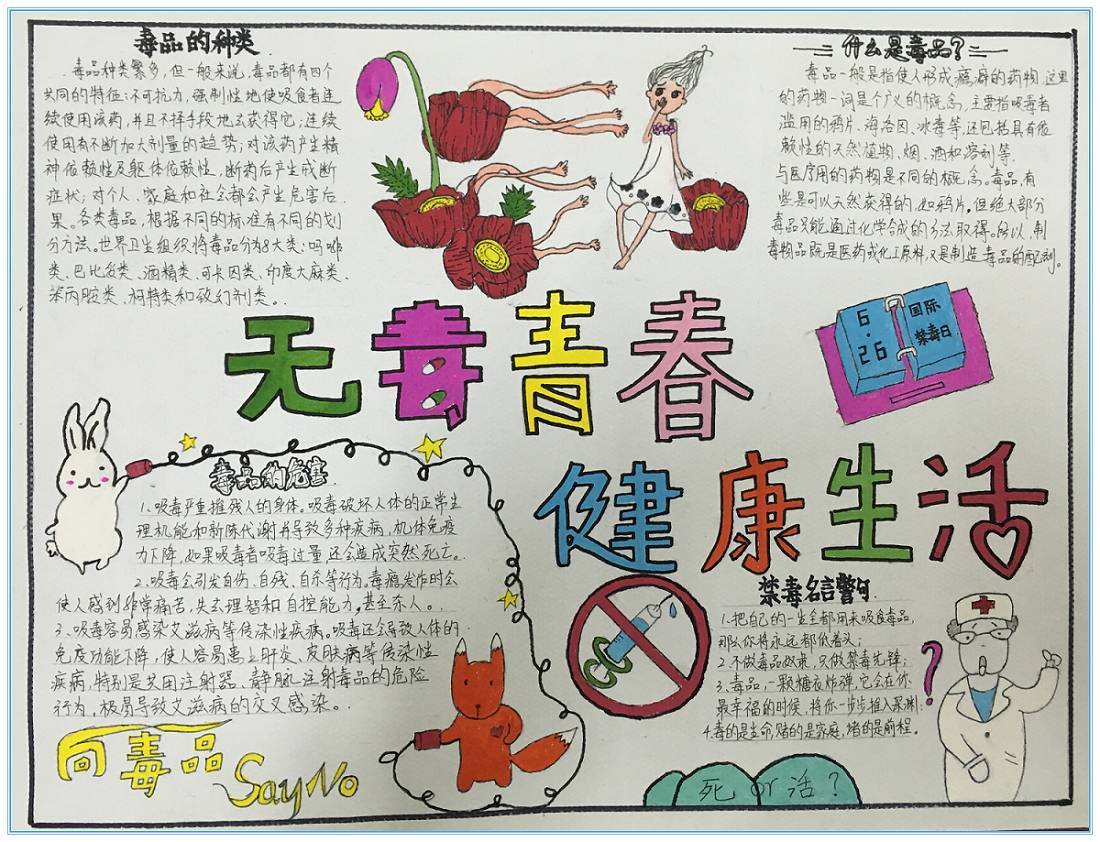 毒品的种类
毒品种类繁多,但一般来说,毒品都有四个
共同的特征:不可抗力,强制性地使吸食者连
续使用该药,并且不择手段地去获得它;连续
使用有不断加大剂量的趋势;对该药产生精
神依赖性及躯体依赖性,断药后产生戒断
症状;对个人、家庭和社会都会产生危害后
果。各类毒品,根据不同的标准有不同的划
分方法。世界卫生组织将毒品分为8大类:吗啡
类、巴比妥类、酒精类、可卡因类、印度大麻类、
苯丙胺类、柯特类和致幻剂类。
什么是毒品?
毒品一般是指使人形成瘾癖的药物,这里
的药物一词是个广义的概念,主要指吸毒者
滥用的鸦片、海洛因、冰毒等,还包括具有依
赖性的天然植物、烟、酒和溶剂等,
与医疗用的药物是不同的概念。毒品,有
些是可以天然获得的,如鸦片,但绝大部分
毒品只能通过化学合成的方法取得。所以,制
毒物品既是医药或化工原料,又是制造毒品的配剂。
无毒青春
6·26
国际
禁毒日
健康生活
毒品的危害
1.吸毒严重摧残人的身体。吸毒破坏人体的正常生
理机能和新陈代谢并导致多种疾病,机体免疫
力下降,如果吸毒者吸毒过量,还会造成突然死亡。
2.吸毒会引发自伤、自残、自杀等行为。毒瘾发作时会
使人感到非常痛苦,失去理智和自控能力,甚至杀人。
3.吸毒容易感染艾滋病等传染性疾病。吸毒还会导致人体的
免疫功能下降,使人容易患上肝炎、皮肤病等传染性
疾病,特别是共用注射器、静脉注射毒品的危险
行为,极易导致艾滋病的交叉感染。
向毒品
Say No
禁毒名言警句
1.把自己的一生全都用来吸食毒品,
那么你将永远都低着头;
2.不做毒品奴隶,只做禁毒先锋;
3.毒品,一颗糖衣炸弹,它会在你
最幸福的时候,将你一步步推入深渊;
4.毒的是生命,赌的是家庭,堵的是前程。
?
死 or 活?